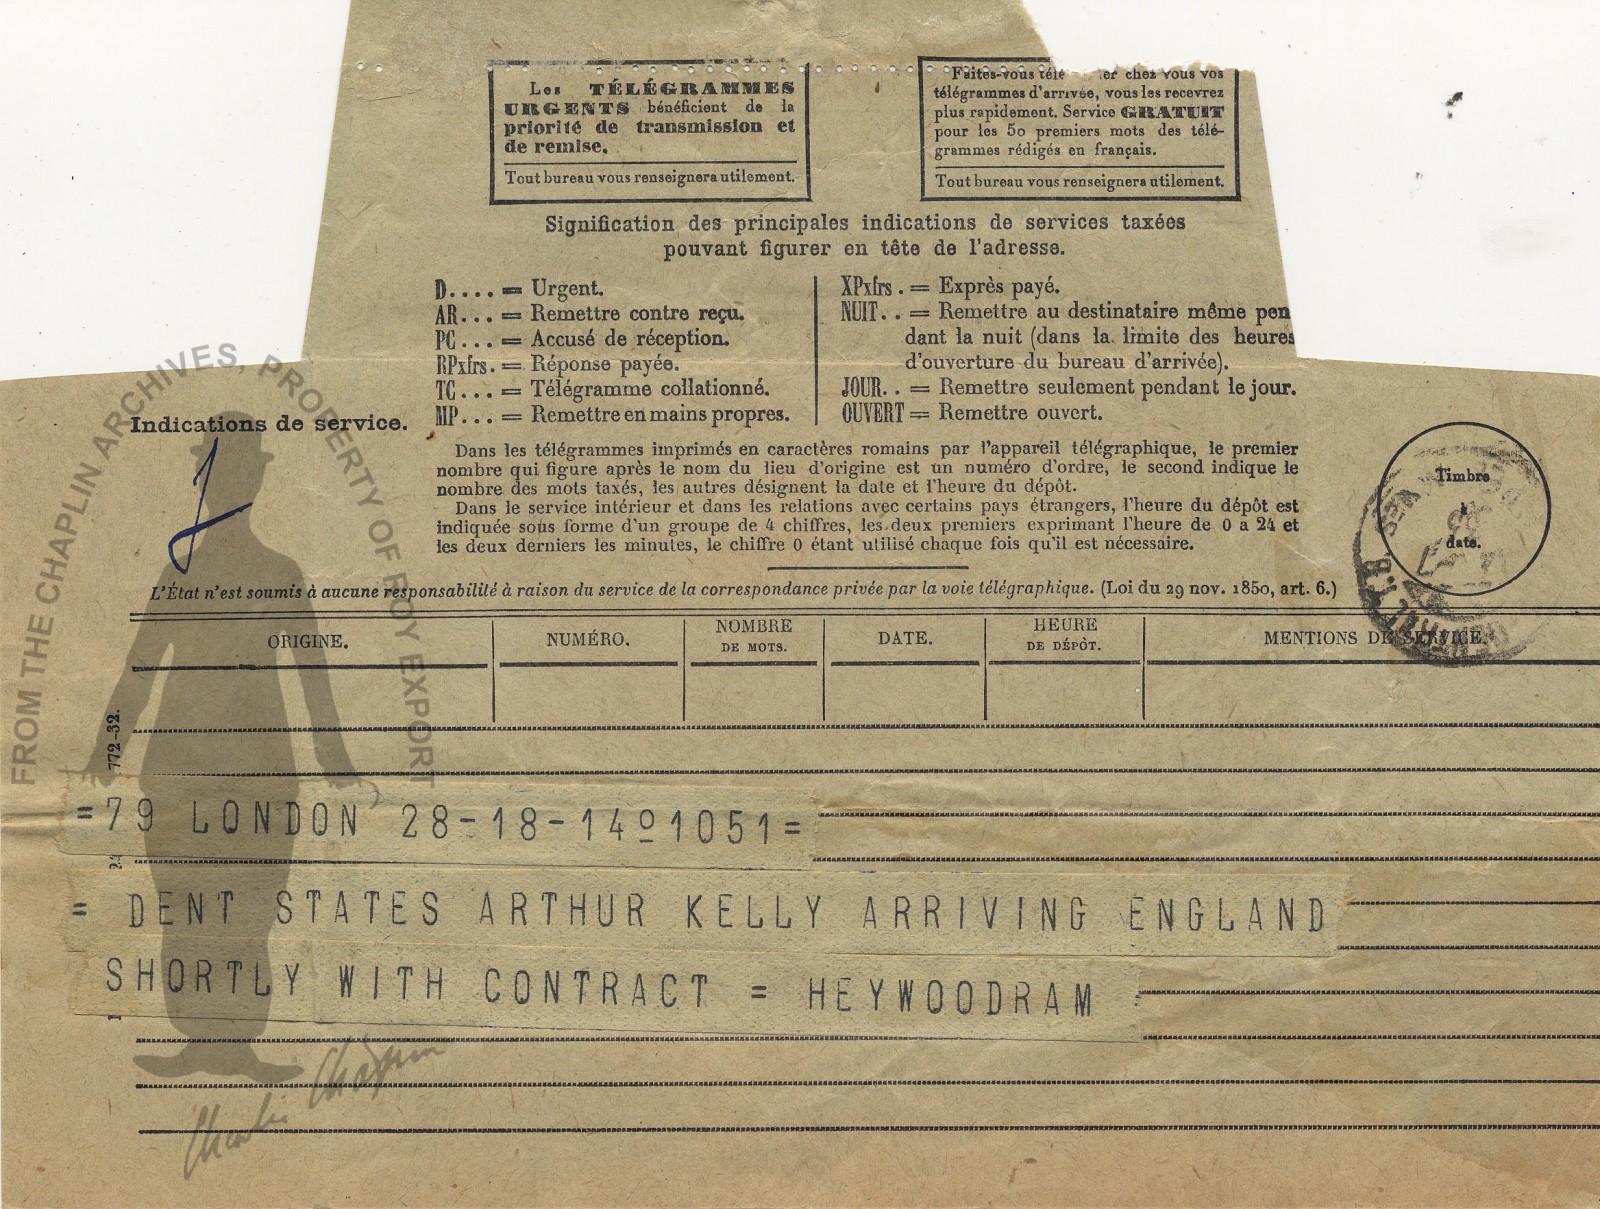 Les TÉLÉGRAMMES
URGENTS bénéficient de la
priorité de transmission et
de remise.
Tout bureau vous renseignera utilement.
Faites-vous télé er chez vous vos
télégrammes d'arrivée, vous les recevrez
plus rapidement. Service GRATUIT
pour les 50 premiers mots des télé-
grammes rédigés en français.
Tout bureau vous renseignera utilement.
Signification des principales indications de services taxées
pouvant figurer en tête de l'adresse.
D.... = Urgent.
AR... = Remettre contre reçu.
PC... = Accusé de réception.
RPxfrs. = Réponse payée.
TC... = Télégramme collationné.
MP... = Remettre en mains propres.
XPxfrs. = Exprès payé.
NUIT.. = Remettre au destinataire même pen
dant la nuit (dans la limite des heures
d'ouverture du bureau d'arrivée).
JOUR.. = Remettre seulement pendant le jour.
OUVERT = Remettre ouvert.
Indications de service.
Dans les télégrammes imprimés en caractères romains par l'appareil télégraphique, le premier
nombre qui figure après le nom du lieu d'origine est un numéro d'ordre, le second indique le
nombre des mots taxés, les autres désignent la date et l'heure du dépôt.
Dans le service intérieur et dans les relations avec certains pays étrangers, l'heure du dépôt est
indiquée sous forme d'un groupe de 4 chiffres, les deux premiers exprimant l'heure de 0 a 24 et
les deux derniers les minutes, le chiffre 0 étant utilisé chaque fois qu'il est nécessaire.
Timbre
à
date.
L'État n'est soumis à aucune responsabilité à raison du service de la correspondance privée par la voie télégraphique. (Loi du 29 nov. 1850, art. 6.)
ORIGINE. NUMÉRO. NOMBRE DE MOTS. DATE. HEURE DE DÉPÔT. MENTIONS DE SERVICE.
772-32.
=79 LONDON 28-18-14º1051=
= DENT STATES ARTHUR KELLY ARRIVING ENGLAND
SHORTLY WITH CONTRACT = HEYWOODRAM =
FROM THE CHAPLIN ARCHIVES, PROPERTY OF ROY EXPORT
Charlie Chaplin